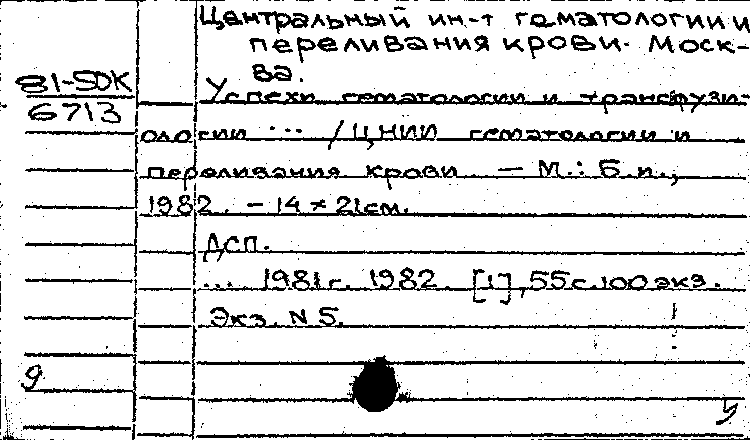 Центральный ин-т гематологии и
переливания крови. Моск-
ва.
81-5ДК
6713
Успехи гематологии и трансфузи-
ологии ... / ЦНИИ гематологии и
переливания крови. — М.: Б.и.,
1982. - 14 × 21 см.
ДСП.
... 1981 г. 1982. [1], 55 с. 100 экз.
Экз. N 5.
9